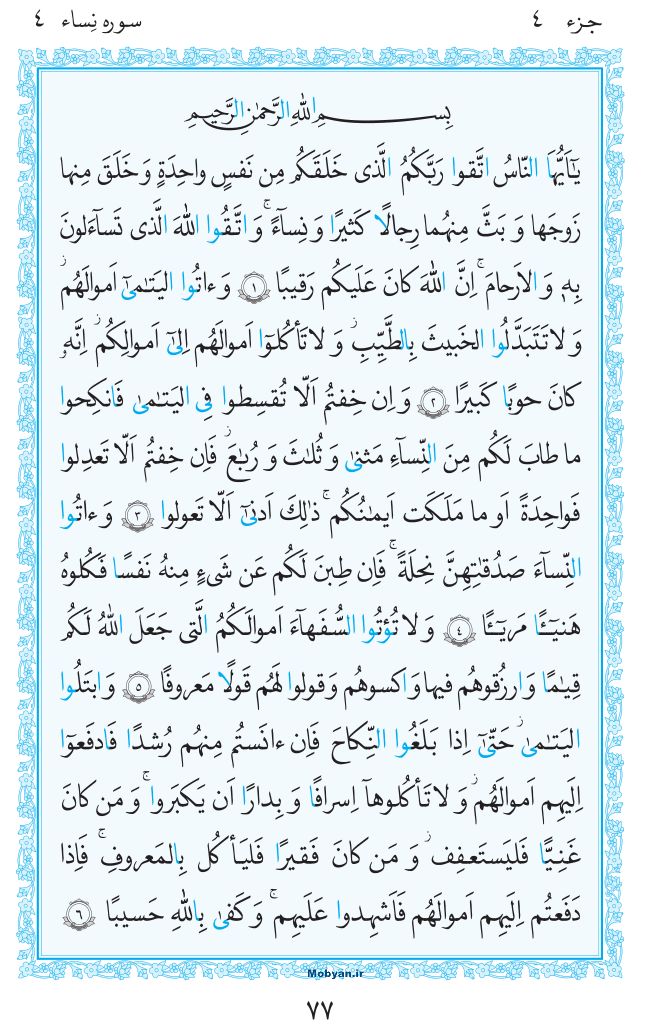 جزء ٤
سوره نِساء ٤
بِسمِ اللهِ الرَّحمٰنِ الرَّحيمِ
يٰٓاَيُّهَا النّاسُ اتَّقوا رَبَّكُمُ الَّذى خَلَقَكُم مِن نَفسٍ واحِدَةٍ وَ خَلَقَ مِنها
زَوجَها وَ بَثَّ مِنهُما رِجالًا كَثيرًا وَ نِسآءً ۚ وَ اتَّقُوا اللهَ الَّذى تَسآءَلونَ
بِهٖ وَ الاَرحامَ ۚ اِنَّ اللهَ كانَ عَلَيكُم رَقيبًا ١ وَ ءاتُوا اليَتٰمىٰٓ اَموالَهُم ۖ
وَ لا تَتَبَدَّلُوا الخَبيثَ بِالطَّيِّبِ ۖ وَ لا تَأكُلوٓا اَموالَهُم اِلىٰٓ اَموالِكُم ۚ اِنَّهٗ
كانَ حوبًا كَبيرًا ٢ وَ اِن خِفتُم اَلّا تُقسِطوا فِى اليَتٰمىٰ فَانكِحوا
ما طابَ لَكُم مِنَ النِّسآءِ مَثنىٰ وَ ثُلٰثَ وَ رُبٰعَ ۖ فَاِن خِفتُم اَلّا تَعدِلوا
فَواحِدَةً اَو ما مَلَكَت اَيمٰنُكُم ۚ ذٰلِكَ اَدنىٰٓ اَلّا تَعولوا ٣ وَ ءاتُوا
النِّسآءَ صَدُقٰتِهِنَّ نِحلَةً ۚ فَاِن طِبنَ لَكُم عَن شَىءٍ مِنهُ نَفسًا فَكُلوهُ
هَنيٓـًٔا مَريٓـًٔا ٤ وَ لا تُؤتُوا السُّفَهآءَ اَموالَكُمُ الَّتى جَعَلَ اللهُ لَكُم
قِيٰمًا وَ ارزُقوهُم فيها وَ اكسوهُم وَ قولوا لَهُم قَولًا مَعروفًا ٥ وَ ابتَلُوا
اليَتٰمىٰ حَتّىٰٓ اِذا بَلَغُوا النِّكاحَ فَاِن ءانَستُم مِنهُم رُشدًا فَادفَعوٓا
اِلَيهِم اَموالَهُم ۖ وَ لا تَأكُلوهآ اِسرافًا وَ بِدارًا اَن يَكبَروا ۚ وَ مَن كانَ
غَنِيًّا فَليَستَعفِف ۖ وَ مَن كانَ فَقيرًا فَليَأكُل بِالمَعروفِ ۚ فَاِذا
دَفَعتُم اِلَيهِم اَموالَهُم فَاَشهِدوا عَلَيهِم ۚ وَ كَفىٰ بِاللهِ حَسيبًا ٦
Mobyan.ir
٧٧